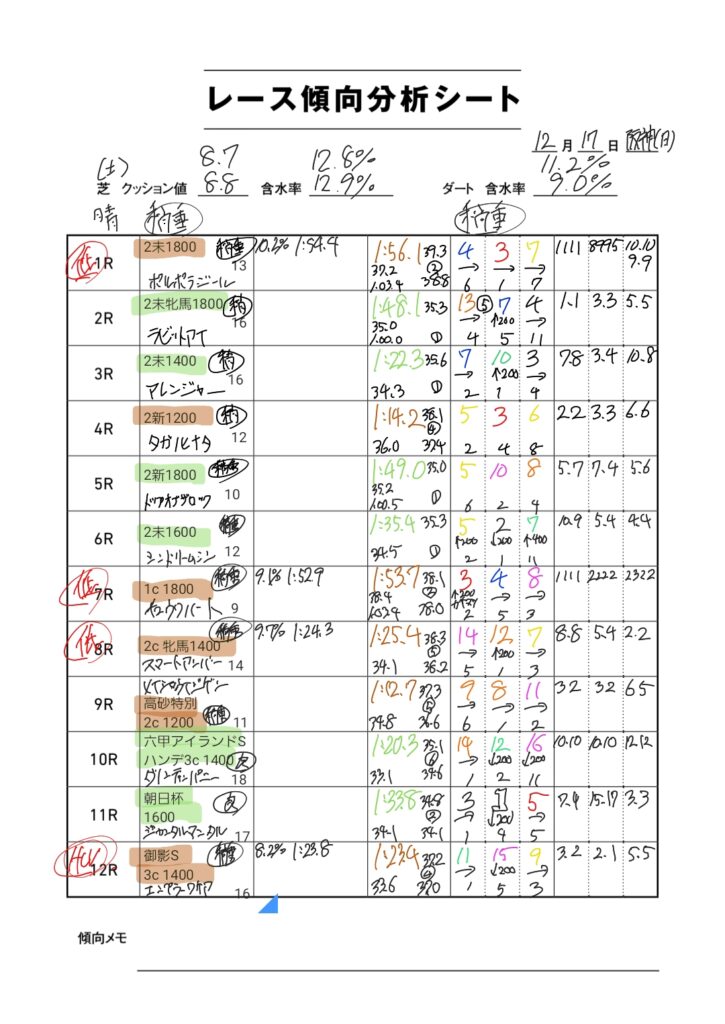 レース傾向分析シート
12月17日 阪神(日)
(土) 8.7 12.8% 11.2%
芝 クッション値 8.8 含水率 12.9% ダート 含水率 9.0%
晴 稍重 稍重
1R 2未1800 稍重 13 10.2% 1:54.4 1:56.1 39.3 4 3 7 1111 8995 10.10
37.2 ② → → → 9.9
ポルポラジール 1:03.4 38.8 6 1 7
2R 2未牝馬1800 稍 16 1:48.1 35.3 13 ⑤ 7 4 1.1 3.3 5.5
35.0 → ↑200 →
ラビットアイ 1:00.0 ① 4 5 11
3R 2未1400 稍 16 1:22.3 35.6 7 10 3 7.8 3.4 10.8
→ ↑200 →
アレンジャー 34.3 ① 2 1 4
4R 2新1200 稍 12 1:14.2 38.1 5 3 6 2.2 3.3 6.6
タガノレナタ 36.0 37.4 2 4 8
5R 2新1800 稍重 10 1:49.0 35.0 5 10 8 5.7 7.4 5.6
35.2
1:00.5 ① 6 2 4
6R 2未1600 稍重 12 1:35.4 35.3 5 2 7 10.9 5.4 4.4
↑200 ↓200 ↑400
34.5 ① 2 1 11
7R 1c 1800 稍重 9 9.1% 1:52.9 1:53.7 38.1 3 4 8 1111 2222 2322
↑200 → →
2 5 3
8R 2c 牝馬1400 稍重 14 9.7% 1:24.3 1:25.4 38.3 14 12 7 8.8 5.4 2.2
→ ↑200 →
スマートアンバー 34.1 38.2 5 1 3
9R 高砂特別 1:12.7 37.3 9 8 11 3.2 3.2 6.5
→ → →
2c 1200 稍重 11 34.8 36.6 6 1 2
10R 六甲アイランドS 1:20.3 35.1 14 12 16 10.10 10.10 12.12
ハンデ3c 1400 良 → ↓200 ↓200
18 33.1 34.6 1 2 11
11R 朝日杯 良 1:33.8 34.8 3 1 5 7.4 15.17 3.3
1600 → ↓200 →
ジャンタルマンタル 17 34.1 34.1 1 4 5
12R 御影S 稍重 8.2% 1:23.8 1:23.4 37.2 11 15 9 3.2 2.1 5.5
3c 1400 → ↓200 →
エンペラーワケア 16 33.6 37.0 1 5 3
傾向メモ